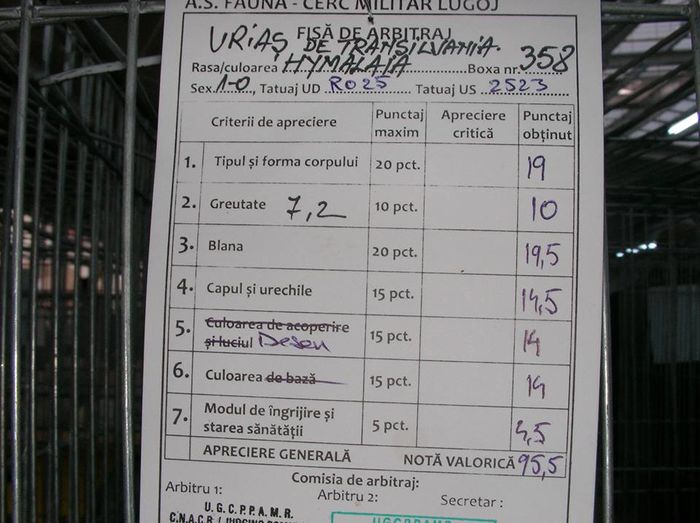 A.S. FAUNA - CERC MILITAR LUGOJ
FIȘĂ DE ARBITRAJ
URIAȘ DE TRANSILVANIA
Rasa/culoarea HYMALAIA Boxa nr. 358
Sex 1-0, Tatuaj UD RO25 Tatuaj US 2523
Criterii de apreciere Punctaj maxim Apreciere critică Punctaj obținut
1. Tipul și forma corpului 20 pct. 19
2. Greutate 7,2 10 pct. 10
3. Blana 20 pct. 19,5
4. Capul și urechile 15 pct. 14,5
5. Culoarea de acoperire
și luciul Desen 15 pct. 14
6. Culoarea de bază 15 pct. 14
7. Modul de îngrijire și
starea sănătății 5 pct. 4,5
APRECIERE GENERALĂ NOTĂ VALORICĂ 95,5
Comisia de arbitraj:
Arbitru 1: Arbitru 2: Secretar :
U.G.C.P.P.A.M.R.